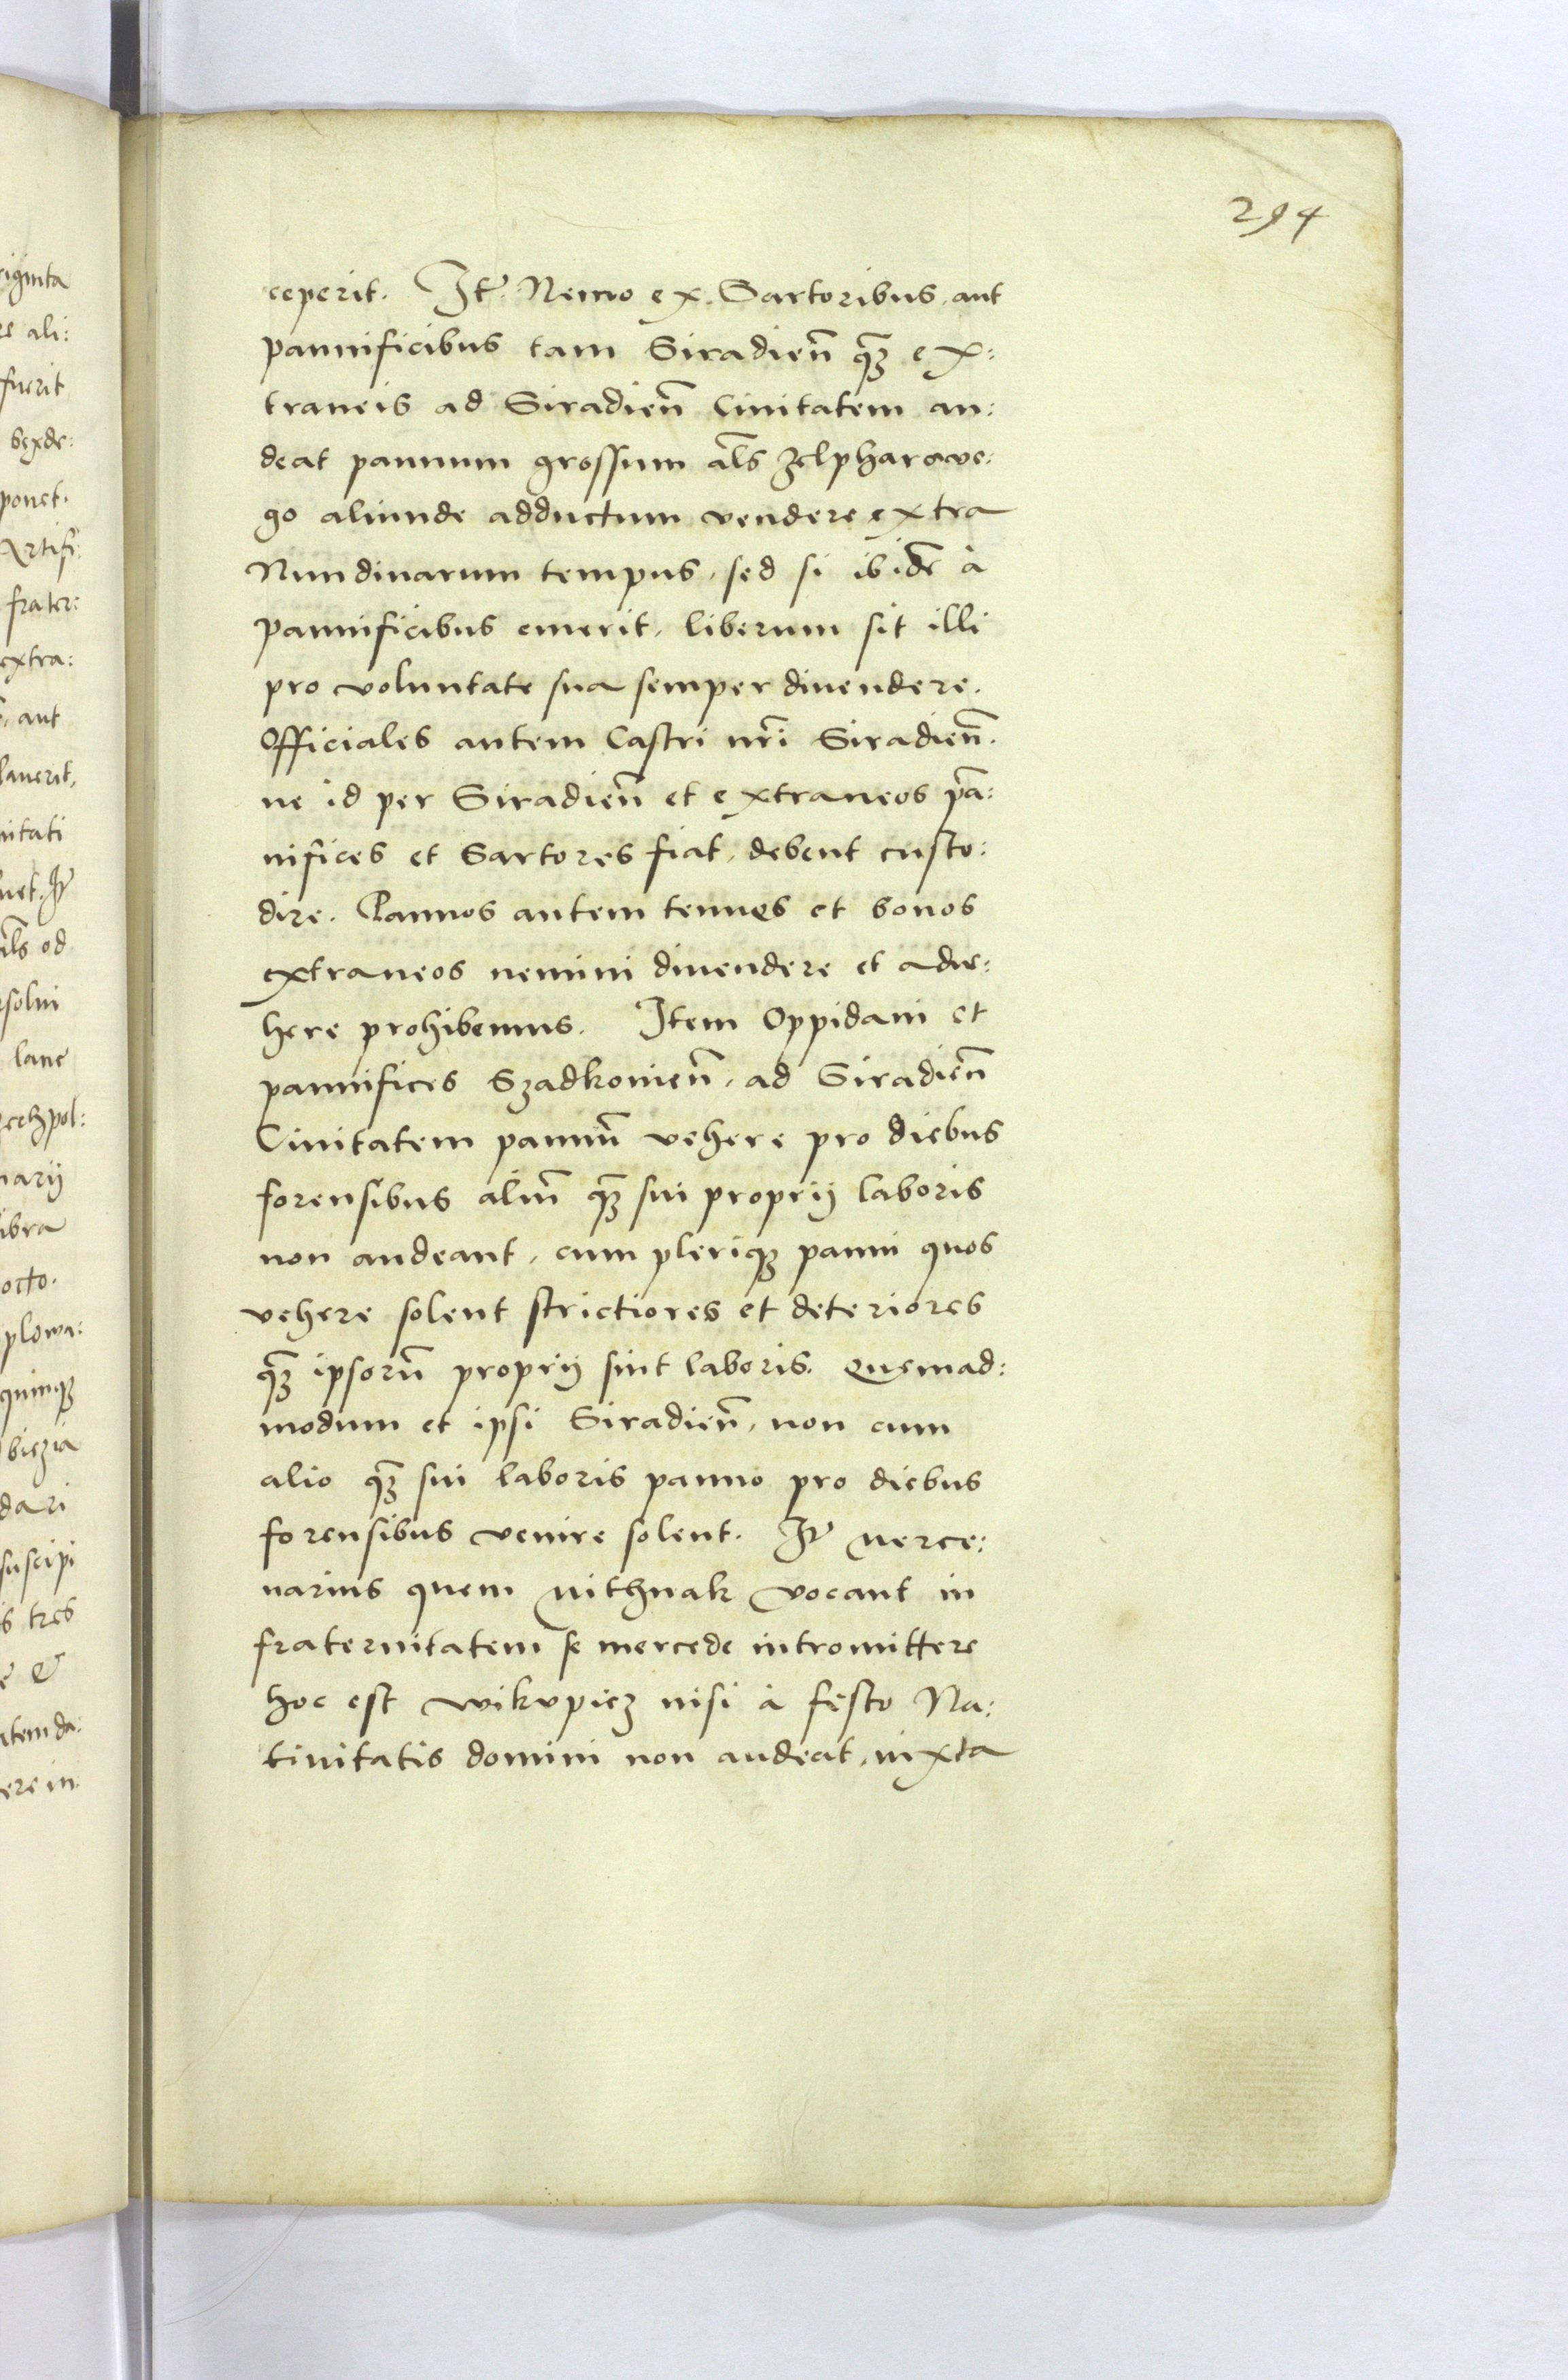 294
ceperit. Itē. Nemo ex Sartoribus, aut
pannificibus tam Siradieñ q̃ȝ ex:
traneis ad Siradieñ Ciuitatem au:
deat pannum grossum al̃s zelpharowe:
go aliunde adductum vendere extra
Nundinarum tempus, sed si ibidē à
pannificibus emerit, liberum sit illi
pro voluntate sua semper diuendere.
Officiales autem Castri nr̃i Siradieñ.
ne id per Siradieñ et extraneos pã:
nifices et Sartores fiat, debent custo:
dire. Pannos autem tenues et bonos
extraneos nemini diuendere et adue:
here prohibemus. Item Oppidani et
pannifices Szadkouieñ, ad Siradieñ
Ciuitatem pannũ vehere pro diebus
forensibus aliũ q̃ȝ sui proprij laboris
non audeant, cum pleriqȝ panni quos
vehere solent strictiores et deteriores
q̃ȝ ipsorũ proprij sint laboris. Quemad:
modum et ipsi Siradieñ, non cum
alio q̃ȝ sui laboris panno pro diebus
forensibus venire solent. Itē merce:
narius quem nithnak vocant in
fraternitatem se mercede intromittere
hoc est wikvpicz nisi à festo Na:
tiuitatis domini non audeat, iuxta
riginta
re ali:
fuerit
sexde:
ponet.
Artifi:
frater:
extra:
aut
lauerit,
nitati
uet. Itē
al̃s od
rsolui
lane
czechpol:
narij
libra
octo.
plowa:
quinqȝ
biczia
dari
suscipi
is tres
&
item da:
ere in